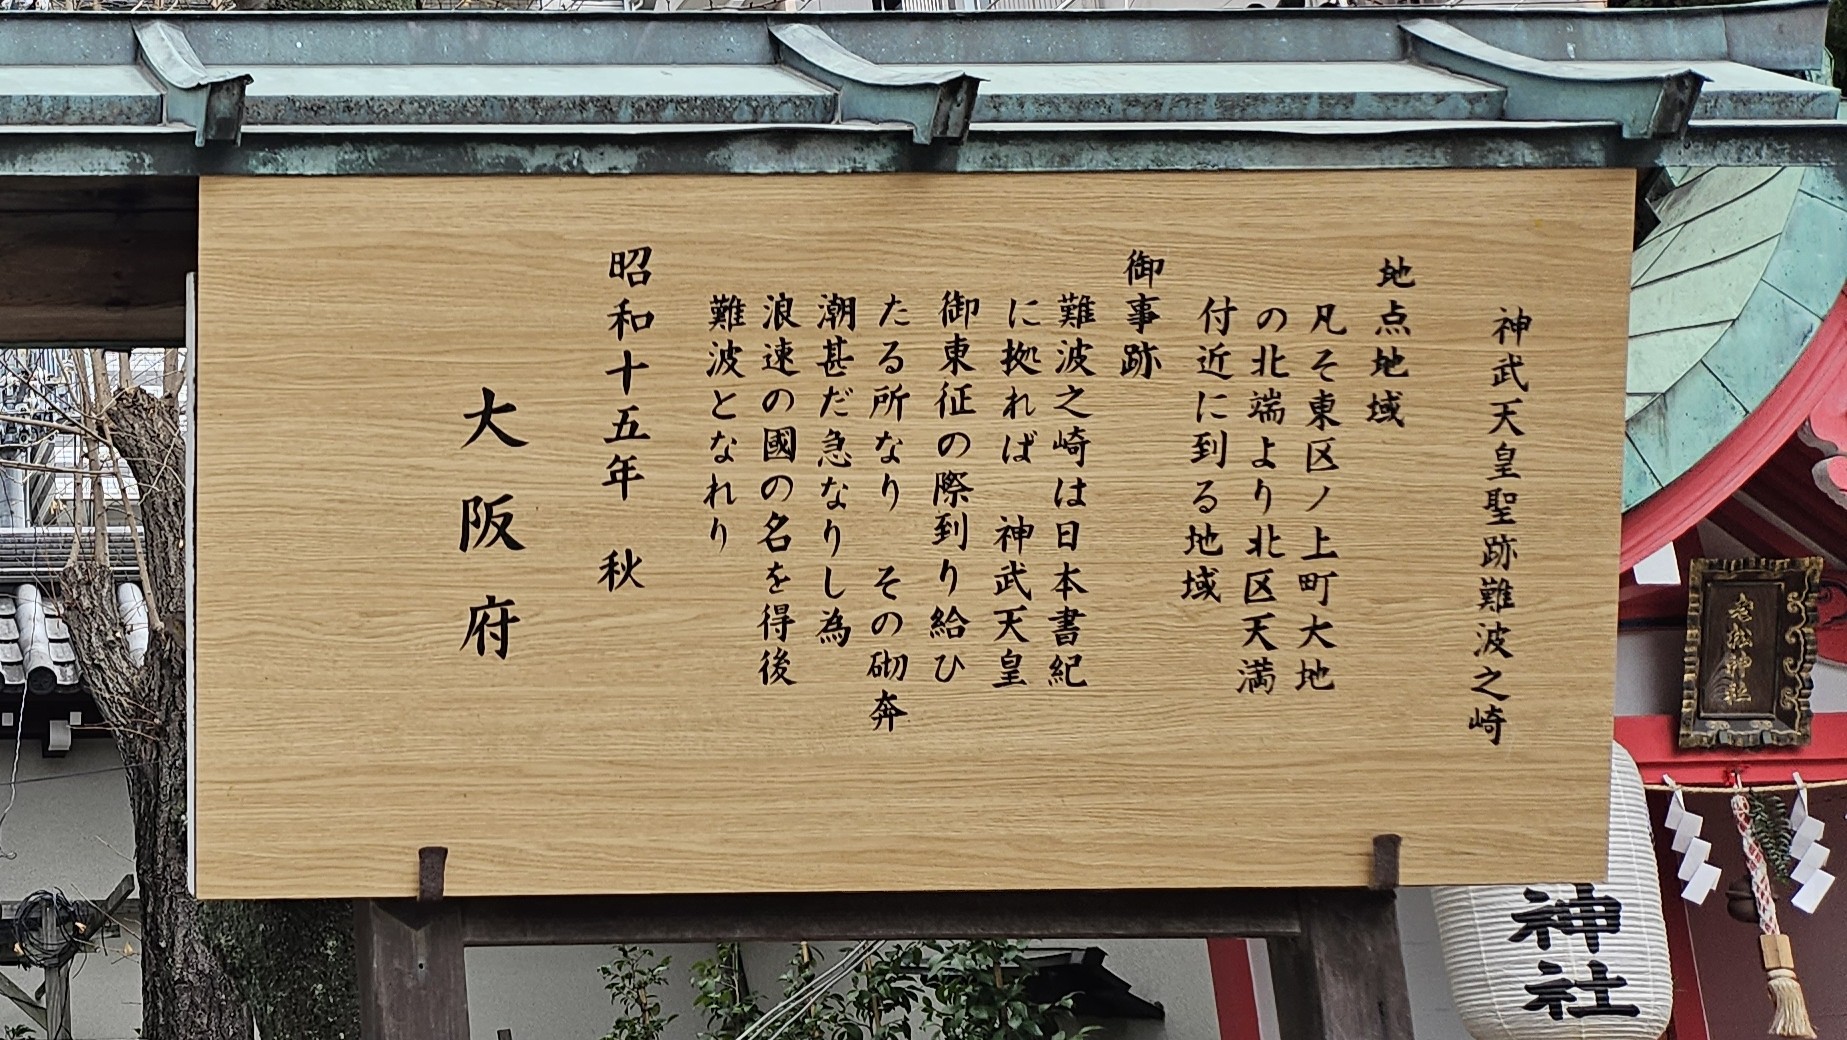 神武天皇聖跡難波之崎
地点地域
凡そ東区ノ上町大地
の北端より北区天満
付近に到る地域
御事跡
難波之崎は日本書紀
に拠れば　神武天皇
御東征の際到り給ひ
たる所なり　その砌奔
潮甚だ急なりし為
浪速の國の名を得後
難波となれり
昭和十五年　秋
大阪府
老松神社
神社